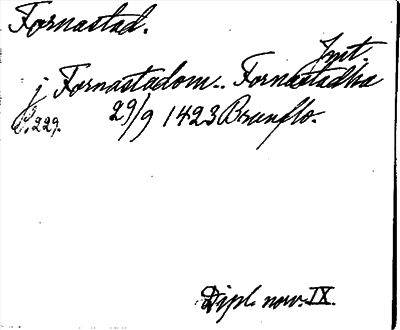 Fornastad.
Jmt.
j Fornastadom.. Fornastadha
s. 229. 29/9 1423 Brunflo.
Dipl. norv. IX.